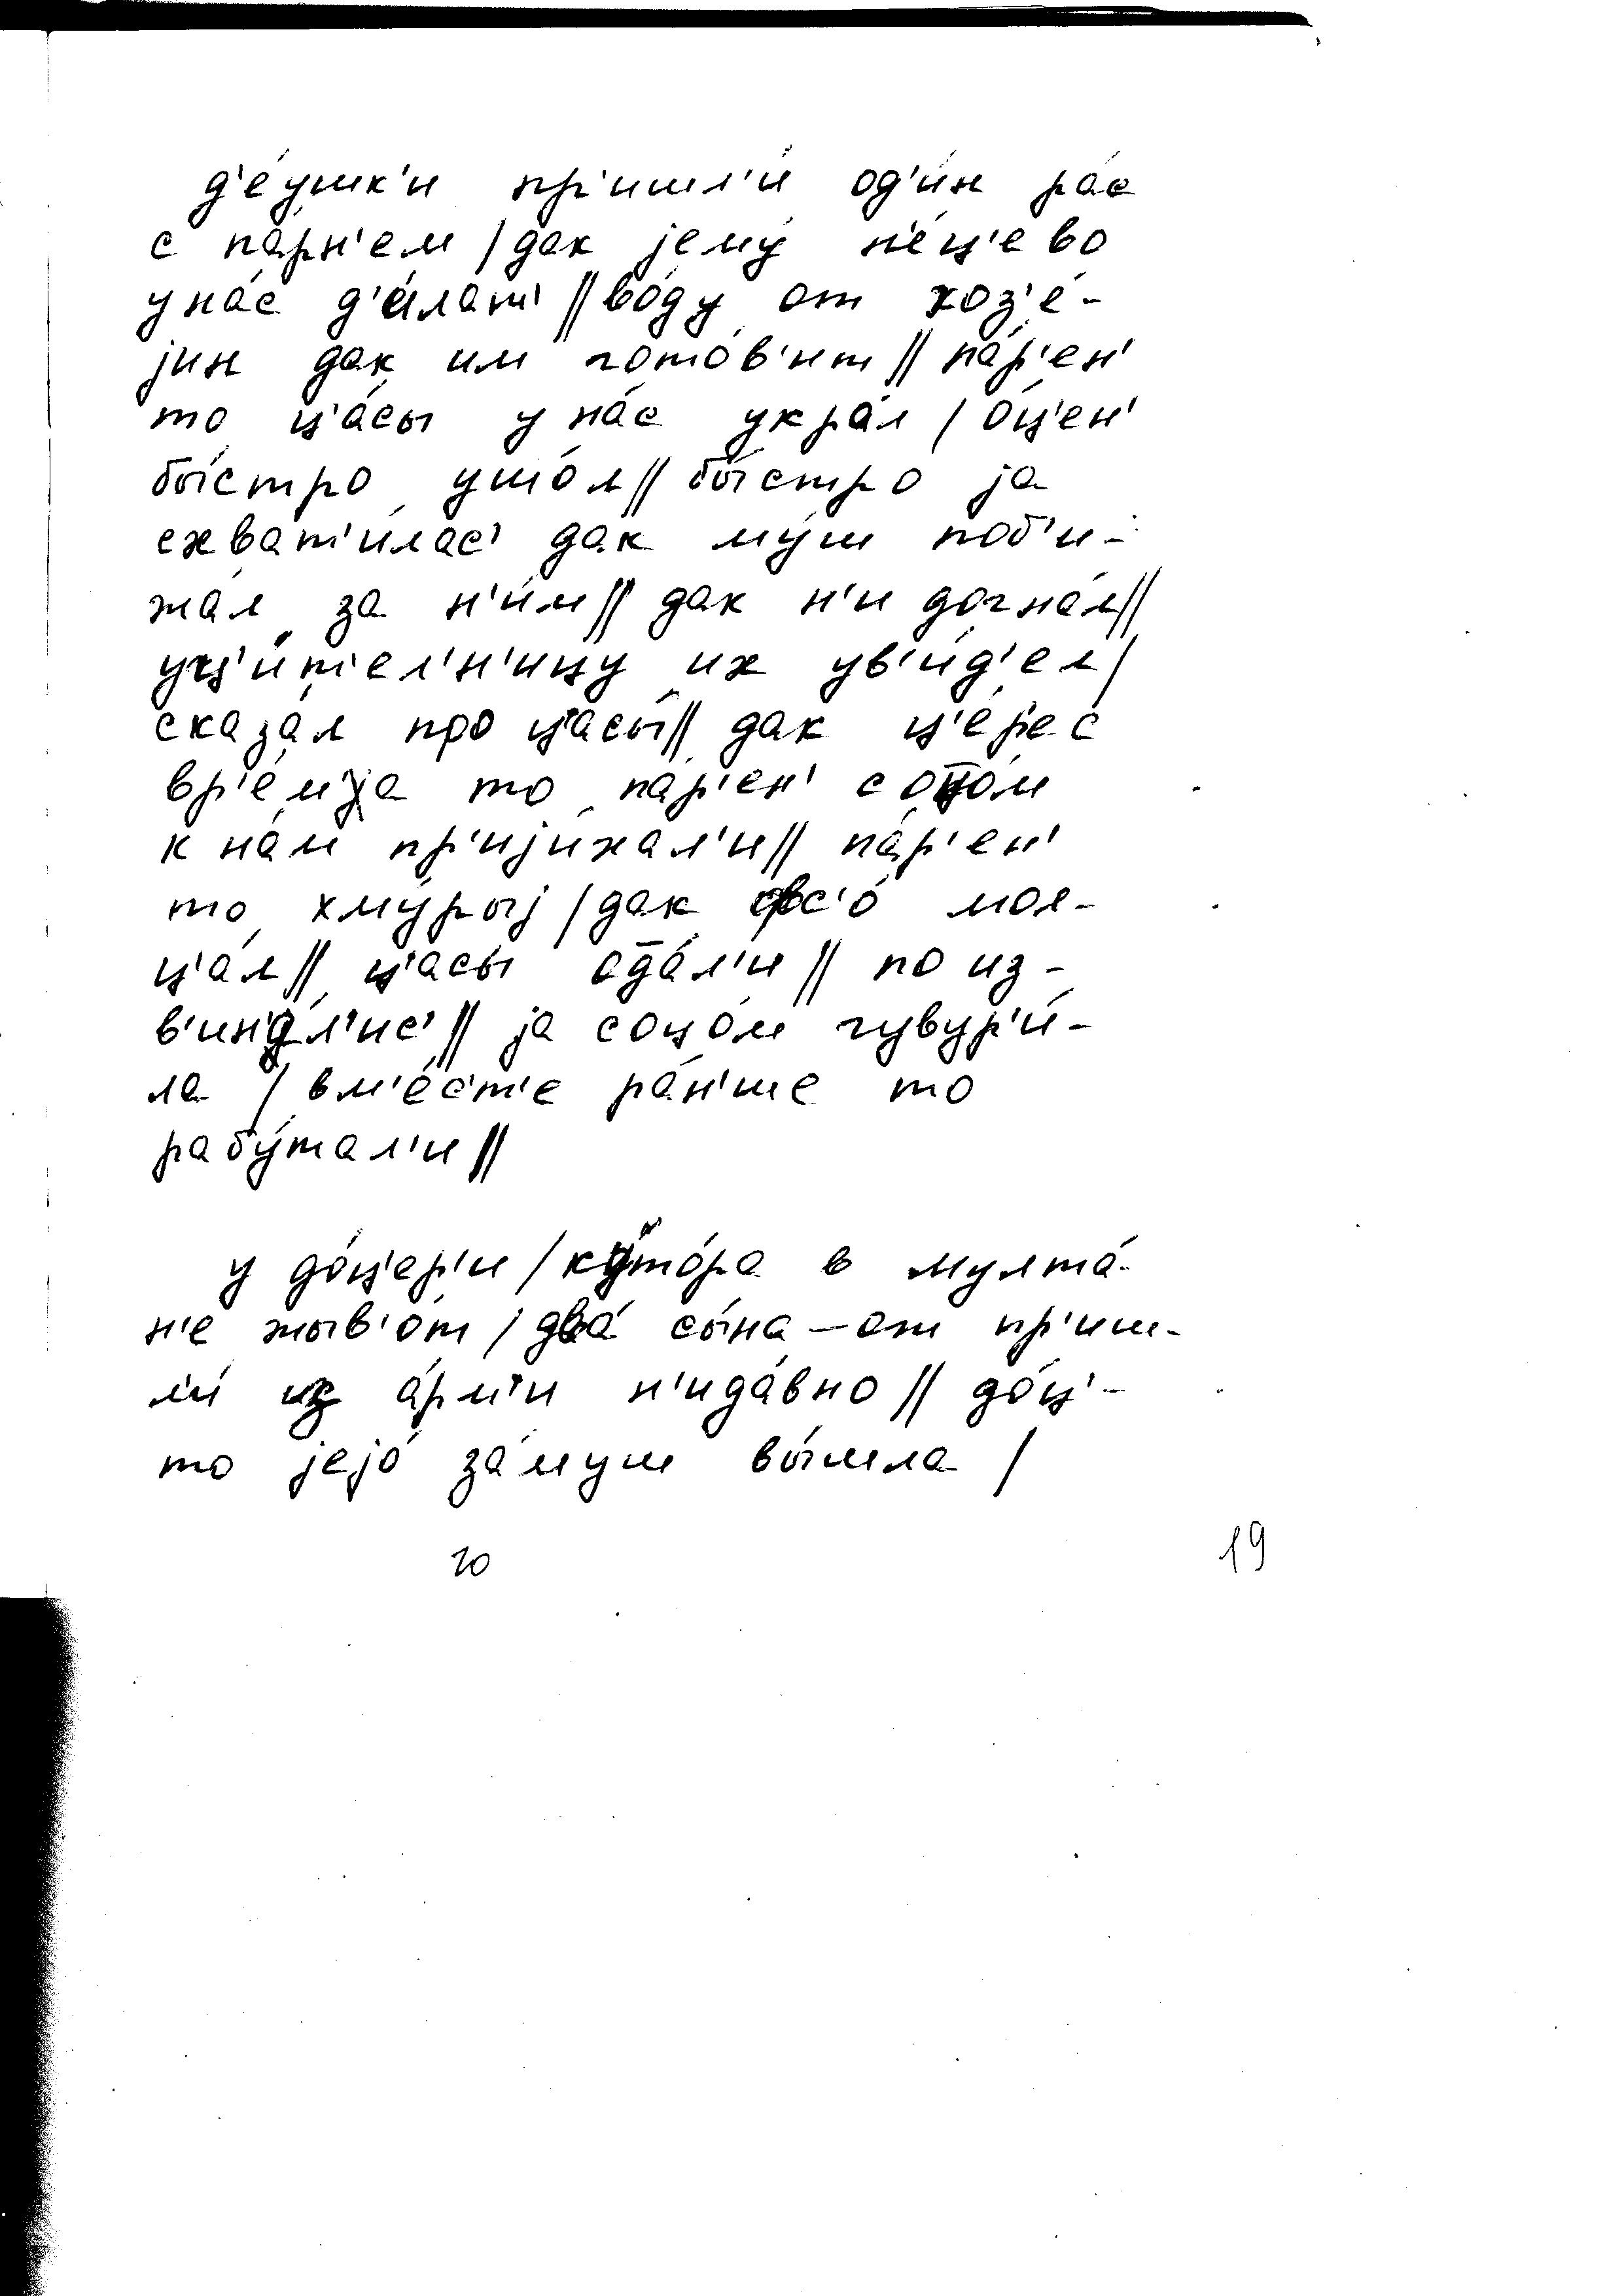 д'е́ушк'и пр'ишл'и́ од'и́н ра́с
с па́рн'ем / дак јему́ н'е́ц'ево
у на́с д'е́лат' // во́ду от хоз'е́-
јин дак им гото́в'ит // па́р'ен'
то ц'а́сы у на́с укра́л / о́ц'ен'
бы́стро ушо́л // бы́стро ја
схват'и́лас' дак му́ш поб'и-
жа́л за н'и́м // дак н'и догна́л //
уц'и́т'ел'н'ицу их ув'и́д'ел /
сказа́л про ц'асы́ // дак ц'е́р'ес
вр'е́мја то па́р'ен' с оцо́м
к на́м пр'ији́хал'и // па́р'ен'
то хму́рыј / дак фс'о́ мол-
ц'а́л // ц'асы́ од̄а́л'и // по из-
в'ин'а́л'ис' // ја с оцо́м гувур'и́-
ла / вм'е́с'т'е ра́н'ше то
рабу́тал'и //
у до́ц'ер'и / куто́ра в мулта́-
н'е жыв'о́т / два́ сы́на – от пр'иш-
л'и́ из а́рм'и н'ида́вно // до́ц'-
то јејо́ за́муш вы́шла /
20
19